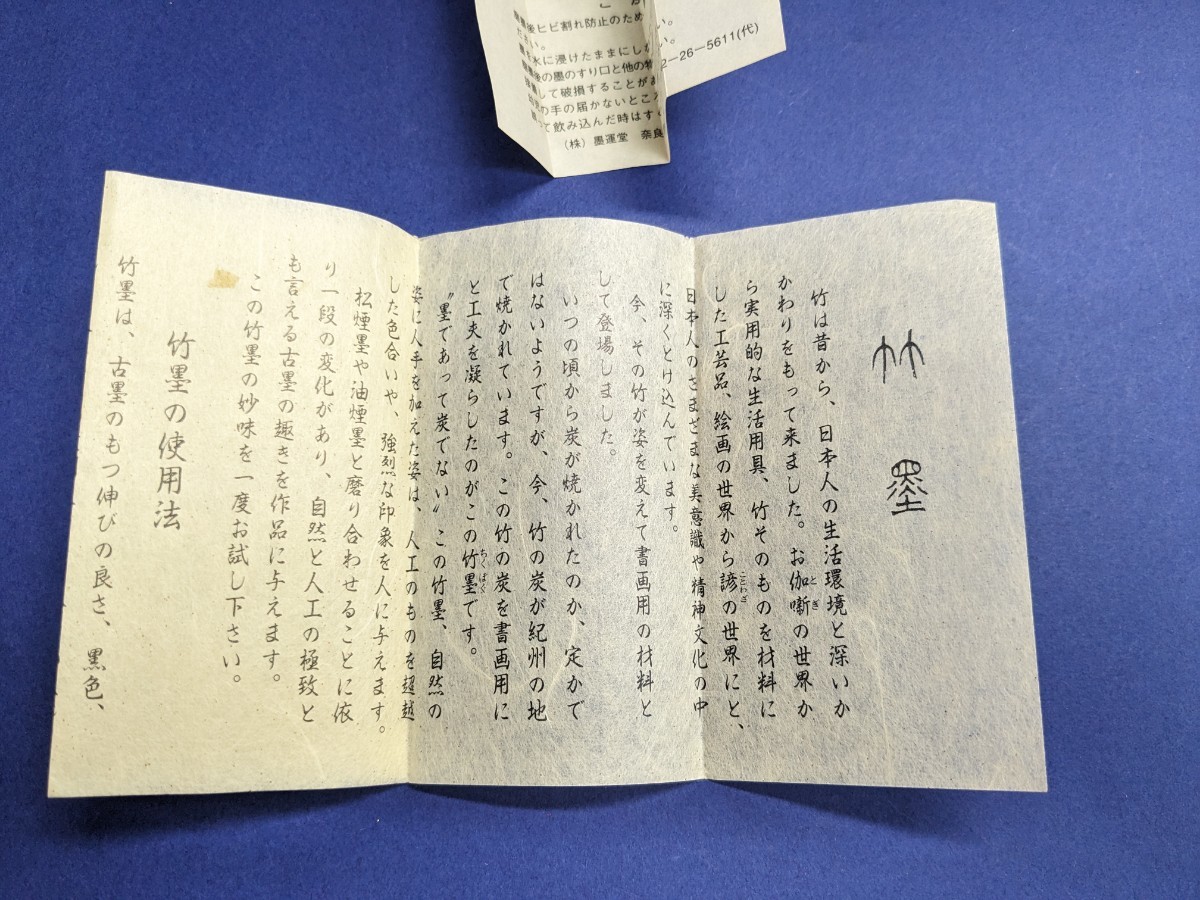 後ヒビ割れ防止のため
さい。
水に浸けたままにし
後の墨のすり口と他の物
して破損することがあ
の手の届かないところ
て飲み込んだ時はす
(株) 墨運堂 奈良
い。
い。
2-26-5611(代)
竹墨
竹は昔から、日本人の生活環境と深いか
かわりをもって来ました。お伽噺の世界か
とぎ
ら実用的な生活用具、竹そのものを材料に
した工芸品、絵画の世界から諺の世界にと、
ことわざ
日本人のさまざまな美意識や精神文化の中
に深くとけ込んでいます。
今、その竹が姿を変えて書画用の材料と
して登場しました。
いつの頃から炭が焼かれたのか、定かで
はないようですが、今、竹の炭が紀州の地
で焼かれています。この竹の炭を書画用に
と工夫を凝らしたのがこの竹墨です。
ちくぼく
〝墨であって炭でない〟この竹墨、自然の
姿に人手を加えた姿は、人工のものを超越
した色合いや、強烈な印象を人に与えます。
松煙墨や油煙墨と磨り合わせることに依
り一段の変化があり、自然と人工の極致と
も言える古墨の趣きを作品に与えます。
この竹墨の妙味を一度お試し下さい。
竹墨の使用法
竹墨は、古墨のもつ伸びの良さ、黒色、